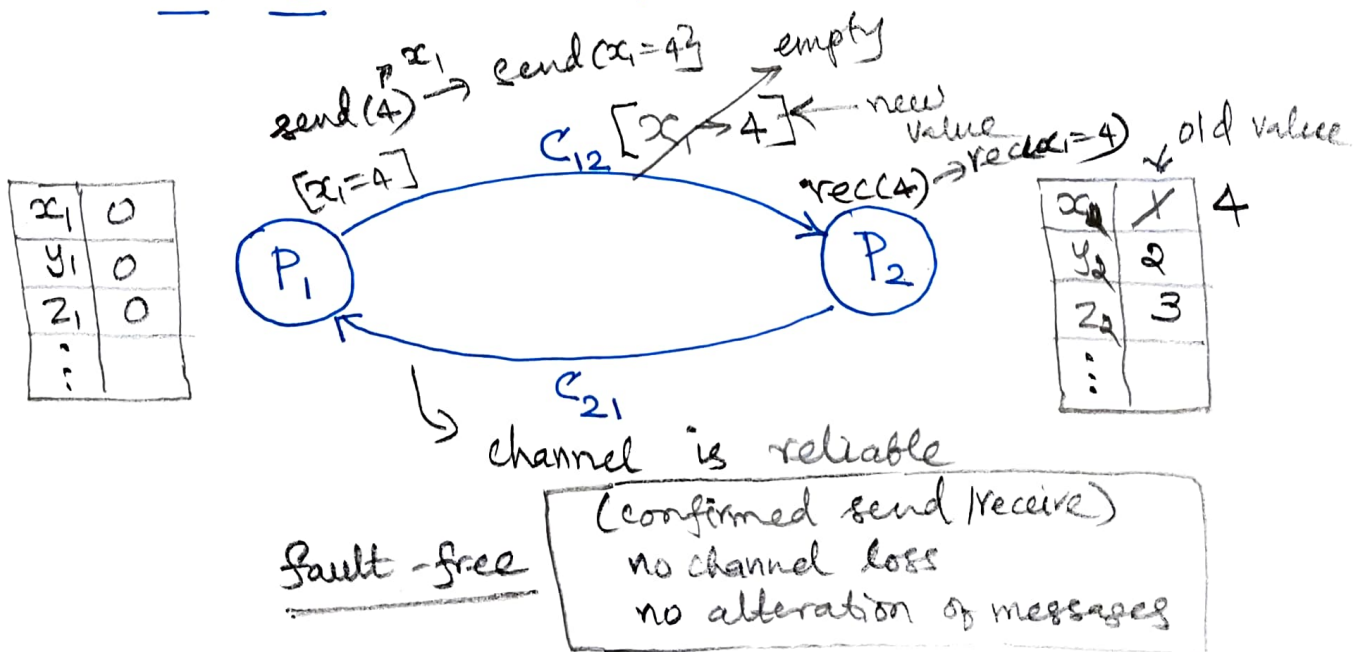 send(4) → x₁ → send(x₁=4)
empty
[x₁ → 4] ← new value
[x₁=4]
C₁₂
rec(4) → rec(x₁=4)
old value
x₁ 0
y₁ 0
z₁ 0
⋮
P₁
P₂
1 4
y₂ 2
z₂ 3
⋮
C₂₁
channel is reliable
(confirmed send/receive)
fault-free
no channel loss
no alteration of messages